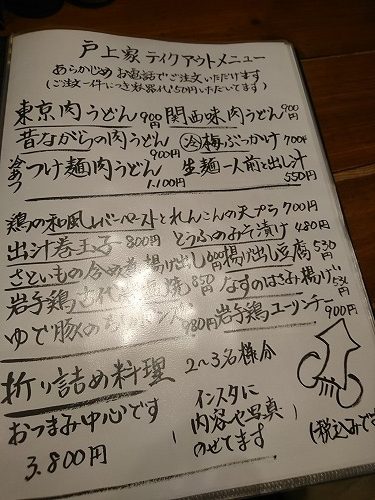 戸上家 テイクアウトメニュー
あらかじめお電話でご注文いただけます
(ご注文一件につき容器代50円いただいてます)
東京肉うどん 900円 関西味肉うどん 900円
昔ながらの肉うどん 900円 冷梅ぶっかけ 700円
冷あつ つけ麺肉うどん 1.100円 生麺一人前と出し汁 550円
鶏の和風レバーペーストとれんこんの天プラ 700円
出汁巻玉子 800円 とうふのみそ漬け 480円
さといもの含め煮揚げ出し 600円 揚げ出し豆腐 530円
岩子鶏 焼 850円 なすのはさみ揚げ 530円
ゆで豚の 980円 岩子鶏ユーリンチー 900円
折り詰め料理 2〜3名様分
おつまみ中心です
3.800円
(インスタに
内容や写真
のせてます
(税込みで